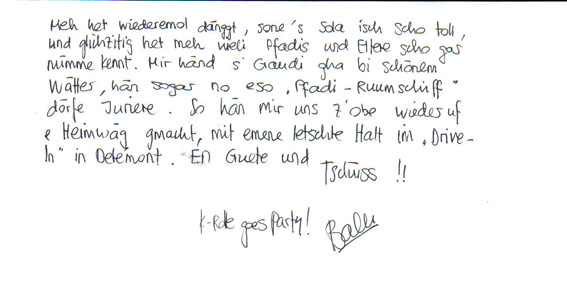 Meh het wiederemol dänggt, sone's Sola isch scho toll,
und glichzitig het meh weli Pfadis und Eltere scho gar
nümme kennt. Mir händ s' Gaudi gha bi schönem
Wätter, hän sogar no eso „Pfadi-Ruumschiff"
dörfe . So hän mir uns z'obe wieder uf
e Heimwäg gmacht, mit emene letschte Halt im „Drive-
In" in Delemont. En Guete und
Tschüss !!
goes Party! Balu